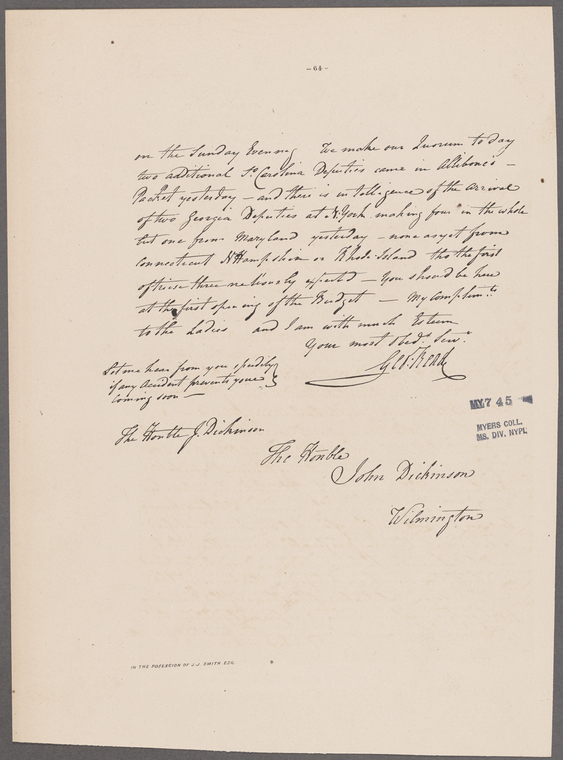 -64-
on the Sunday Evening We make our Quorum to day
two additional So. Carolina Deputies came in Allibone's -
Packet yesterday - and there is intelligence of the arrival
of two Georgia Deputies at N. York making four in the whole
but one from Maryland yesterday - none as yet from
Connecticut N Hampshire or Rhode-Island tho the first
of these three are hourly expected - You should be here
at the first opening of the Budget - My Complimts.
to the Ladies and I am with much Esteem
Your most obedt. Servt.
Geo: Read
Let me hear from you speedily
if any Accident prevents your
coming soon -
The Honble J. Dickinson
The Honble
John Dickinson
Wilmington
MY 7 45
MYERS COLL.
MS. DIV. NYPL
IN THE POSSESSION OF J.J. SMITH ESQ.